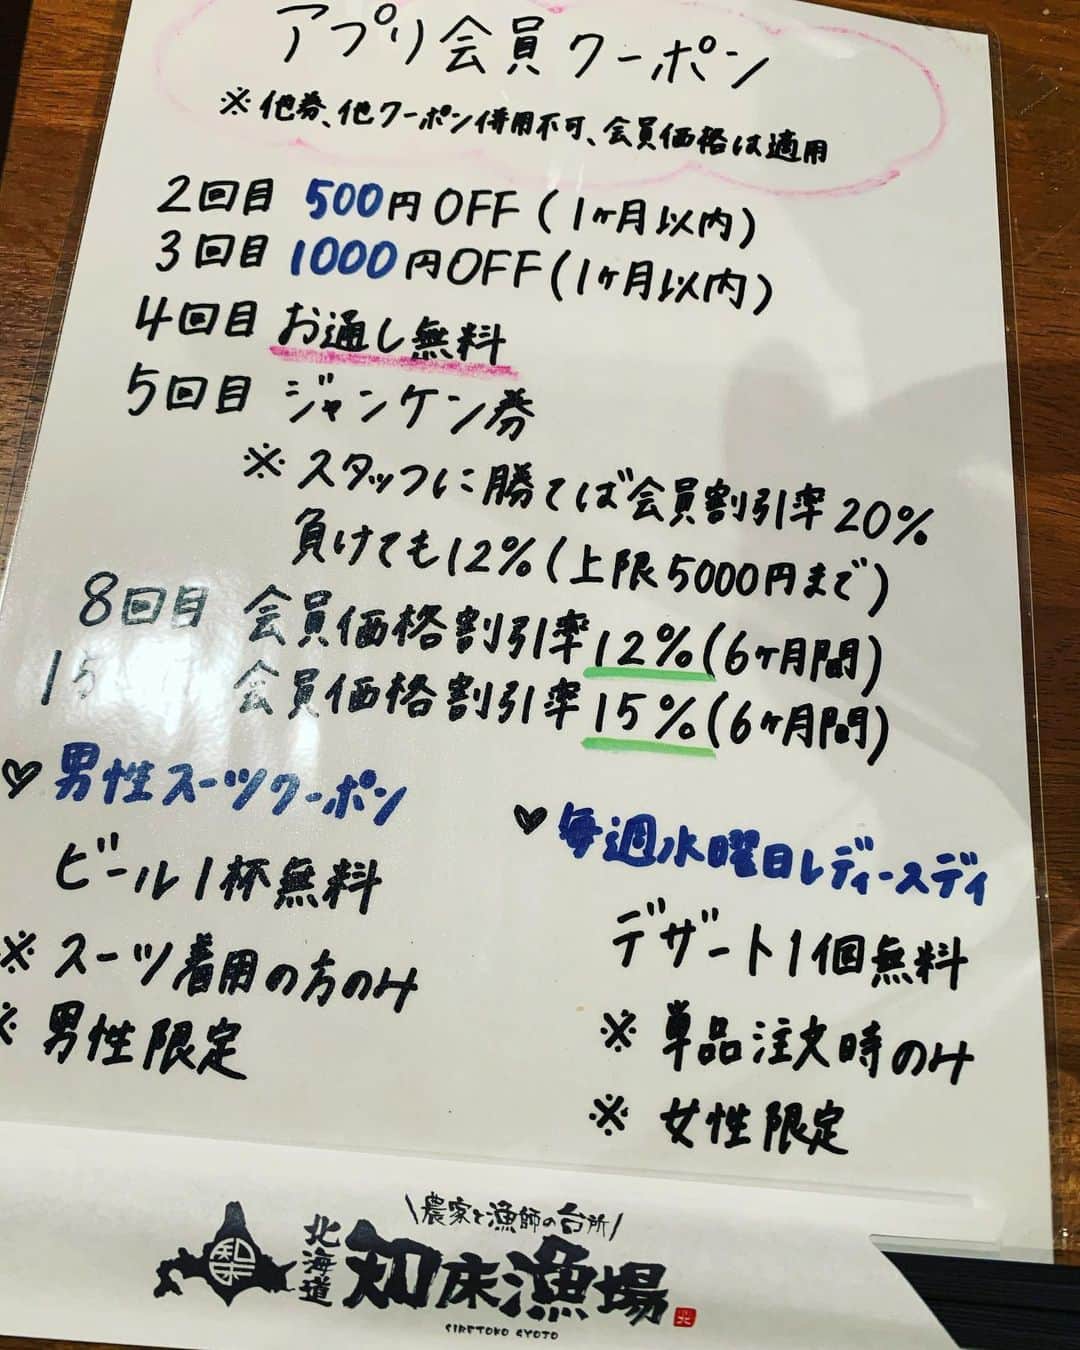 アプリ会員クーポン
※他券、他クーポン併用不可、会員価格は適用
2回目 500円OFF(1ヶ月以内)
3回目 1000円OFF(1ヶ月以内)
4回目 お通し無料
5回目 ジャンケン券
※スタッフに勝てば会員割引率20%
負けても12%(上限5000円まで)
8回目 会員価格割引率12%(6ヶ月間)
15 会員価格割引率15%(6ヶ月間)
♡男性スーツクーポン
ビール1杯無料
※スーツ着用の方のみ
※男性限定
♡毎週水曜日レディースディ
デザート1個無料
※単品注文時のみ
※女性限定
\農家と漁師の台所/
北海道 知床漁場
SIRETOKO GYOJO